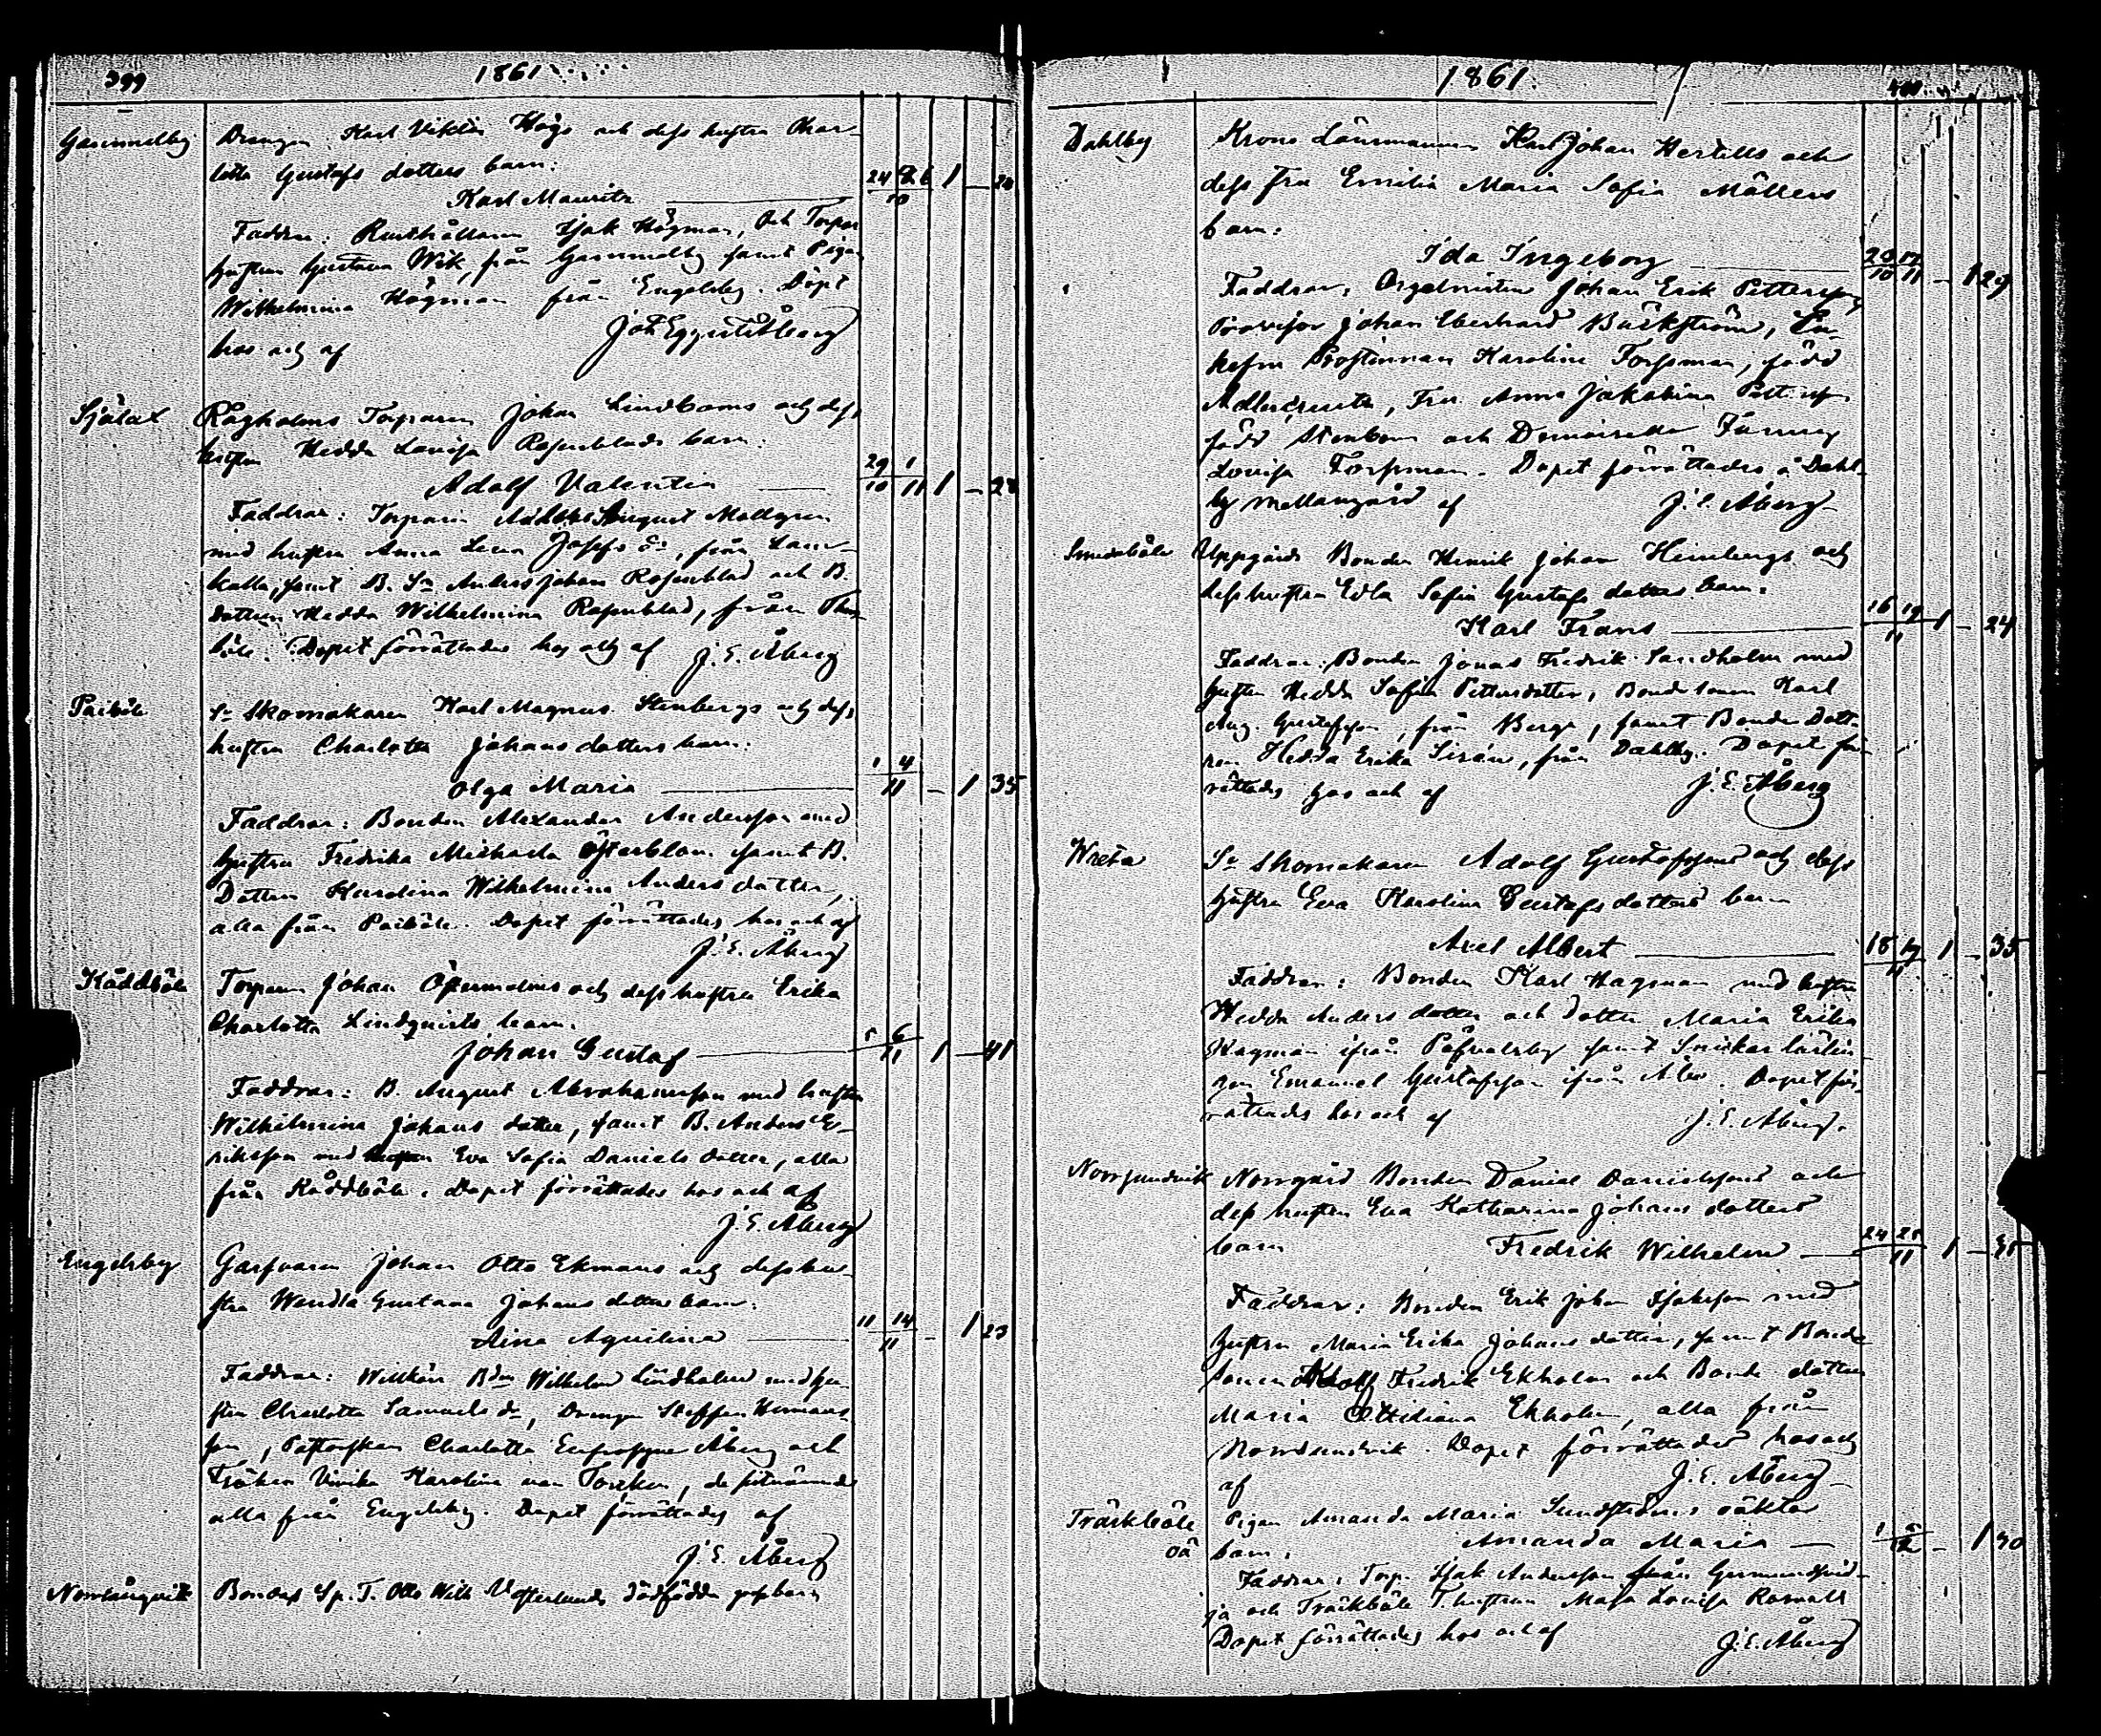 399
1861
Gammelby Drengen Karl Viktor Högs och dess hustru Char-
lotta Gustafs dotters barn:
Karl Mauritz 24 26 1 – 20
10
Faddrar: Rusthållaren Isak Högman, och Torpar
hustrun Gustava Wik, från Gammelby samt Pigan
Wilhelmina Högman från Engelsby. Döpt
hos och af Joh Eggert Åberg
Själax Rågholms Torparen Johan Lindboms och dess
hustru Hedda Lovisa Rosenblads barn:
29 1
Adolf Valentin 10 11 1 – 28
Faddrar: Torparen August Mallgren
med hustru Anna Lena Josefs dr, från Lam-
kalla, samt B. Sn Anders Johan Rosenblad och B.
dottren Hedda Wilhelmina Rosenblad, från
böle. Dopet förrättades hos och af J. E. Åberg
Paiböle Sn Skomakaren Karl Magnus Stenbergs och dess
hustru Charlotta Johans dotters barn:
1 4
Olga Maria 11 – 1 35
Faddrar: Bonden Alexander Andersson med
hustru Fredrika Michaela Österblom samt B.
Dottren Karolina Wilhelmina Anders dotter,
alla från Paiböle. Dopet förrättades hos och af
J. E. Åberg
Råddböle Torparen Johan Östermalms och dess hustru Erika
Charlotta Lindqvists barn.
5 6
Johan Gustaf 11 1 – 41
Faddrar: B. August Abrahamsson med hustru
Wilhelmina Johans dotter, samt B. Anders E-
riksson med hustru Eva Sofia Daniels dotter, alla
från Råddböle. Dopet förrättades hos och af
J. E. Åberg
Engelsby Garfvaren Johan Otto Ekmans och dess hu-
stru Wendla Gustava Johans dotters barn.
11 14
Aina Aquilina 11 – 1 23
Faddrar: Wilhelm Lindholm med hu-
stru Charlotta Samuels dr, Drengen Steffan Hermans-
son, Pastorskan Charlotta Eufrosyne Åberg och
Fröken Ulrika Karolina von Torcken, de sistnämnde
alla från Engelsby. Dopet förrättades af
J. E. Åberg
Norrlångvik Bondes Sp. T. Otto Wilh Westerlunds dödfödda gossebarn
1861.
400
Dahlby Krono Länsmannen Karl Johan Hertells och
dess Fru Emilia Maria Sofia Möllers
barn:
Ida Ingeborg 20 17
10 11 – 1 29
Faddrar: Orgelnisten Johan Erik Pettersson
Provisor Johan Eberhard Bäckström, En-
kefru Prostinnan Karolina Forssman, född
Adlercreutz, Fru Anna Jakobina Pettersson
född Stenbom och Demoiselle Fanny
Lovisa Forssman. Dopet förrättades å Dahl-
by Mellangård af J. E. Åberg
Smedsböle Uppgårds Bonden Henrik Johan Heinbergs och
dess hustru Edla Sofia Gustafs dotters barn.
16 19
Karl Frans 11 1 – 24
Faddrar: Bonden Jonas Fredrik Sandholm med
hustru Hedda Sofia Pettersdotter, Bondesonen Karl
Aug. Gustafsson, från Berga, samt Bonde Dott-
ren Hedda Erika Sirén, från Dahlby. Dopet för-
rättades hos och af J. E. Åberg
Wreta Sn Skomakaren Adolf Gustafssons och dess
hustru Eva Karolina Gustafs dotters barn
Axel Albert 18 19 1 – 35
11
Faddrar: Bonden Karl Hagman med hustru
Hedda Anders dotter och dotter Maria Erika
Hagman ifrån Påfvalsby samt Snickar lärlin-
gen Emanuel Gustafsson ifrån Åbo. Dopet för-
rättades hos och af J. E. Åberg.
Norrsundvik Norrgård Bonden Daniel Danielssons och
dess hustru Eva Katharina Johans dotters
barn Fredrik Wilhelm 24 25
11 1 –
Faddrar: Bonden Erik Johan Isaksson med
hustru Maria Erika Johans dotter, samt Bonde
sonen Adolf Fredrik Ekholm och Bonde dottren
Maria Ottiliana Ekholm, alla från
Norrsundvik. Dopet förrättades hos och
af J. E. Åberg
Träskböle Pigan Amanda Maria Sundströms oäkta
oä barn. Amanda Maria 1
12 – 1 30
Faddrar: Torp. Isak Andersson från
och Träskböle T. hustrun Maja Lovisa Rosvall
Dopet förrättades hos och af J. E. Åberg